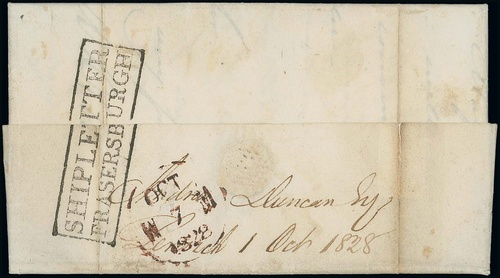 SHIPLETTER
FRASERSBURGH
OCT
M 7 M
1828
Duncan Esq
1 Oct 1828